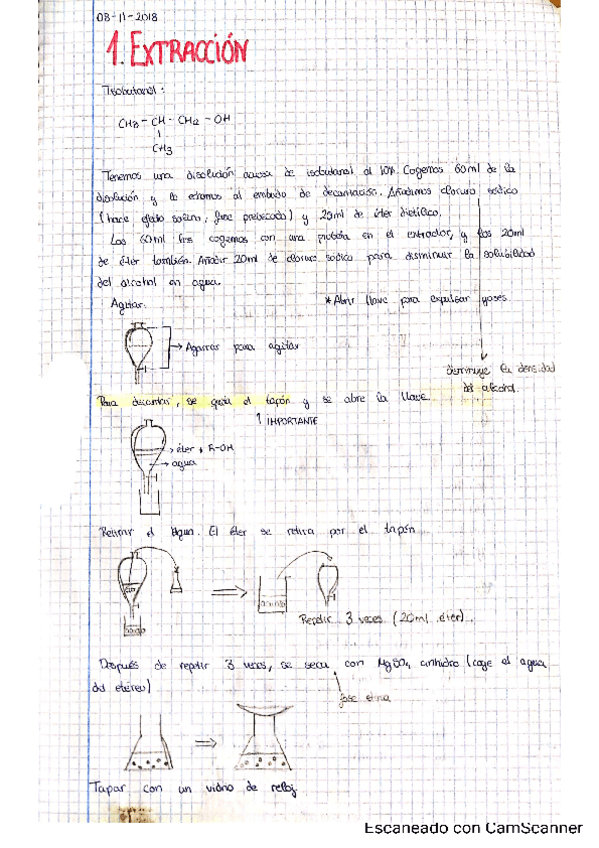 08-11-2018
1. EXTRACCIÓN
Isobutanol:
CH3 - CH - CH2 - OH
CH3
Tenemos una disolución acuosa de isobutanol al 10%. Cogemos 60ml de la
disolución y la echamos al embudo de decantación. Añadimos cloruro sódico
(hace efecto salino, fase) y 20ml de éter dietílico.
Los 60ml los cogemos con una probeta en el extractor, y los 20ml
de éter también. Añadir 20ml de cloruro sódico para disminuir la solubilidad
del alcohol en agua.
Agitar.
*Abrir llave para expulsar gases
Agarrar para agitar
disminuye la densidad
del alcohol.
Para decantar, se quita el tapón y se abre la llave.
IMPORTANTE
éter + R-OH
agua
Retirar el agua. El éter se retira por el tapón
Repetir 3 veces (20ml éter).
Después de repetir 3 veces, se seca con MgSO4 anhidro (coge el agua
del etéreo)
fase etérea
Tapar con un vidrio de reloj.
Escaneado con CamScanner